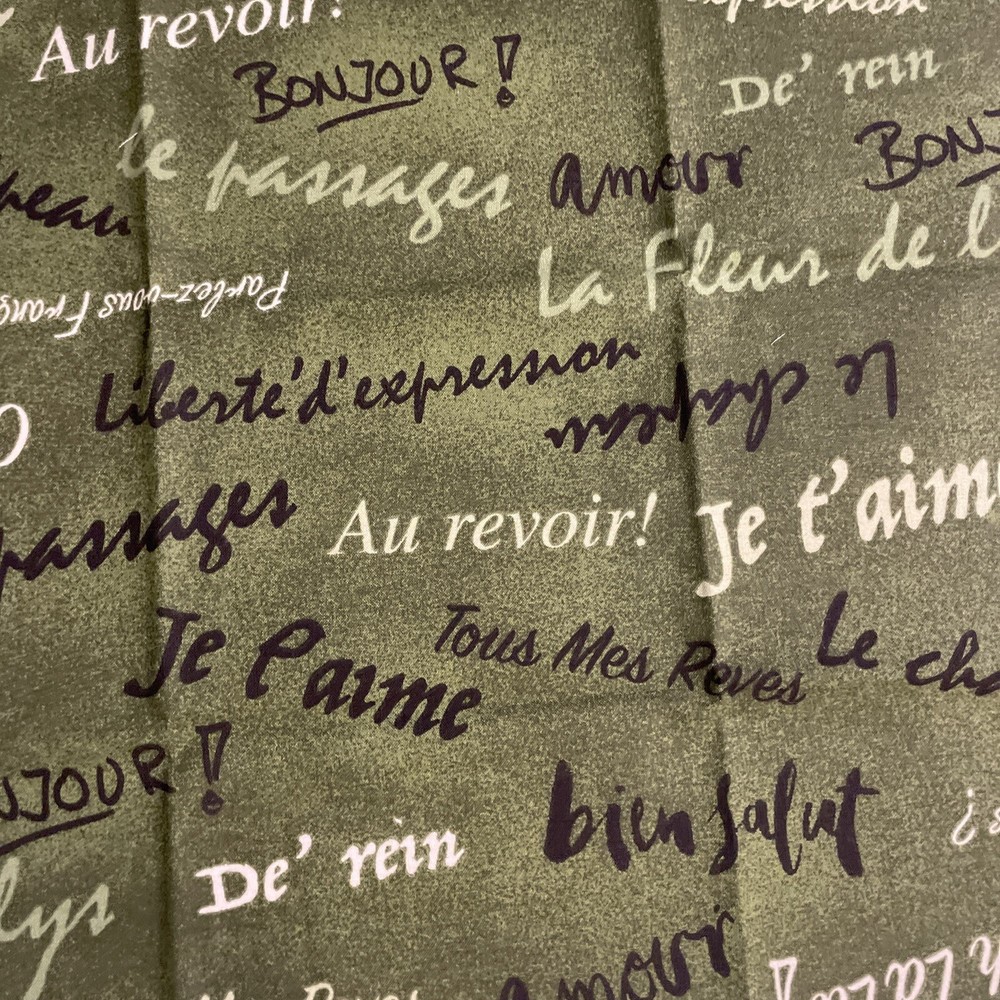 Au revoir!
expression
BONJOUR!
De' rein
le passages
amour
BONJ
peau
La Fleur de l
Parlez-vous Franç
Liberté d'expression
Le chapeau
passages
Au revoir!
Je t'aim
Je l'aime
Tous Mes Reves
Le cha
NJOUR!
bien salut
De' rein
lys
amour
Mes Reves